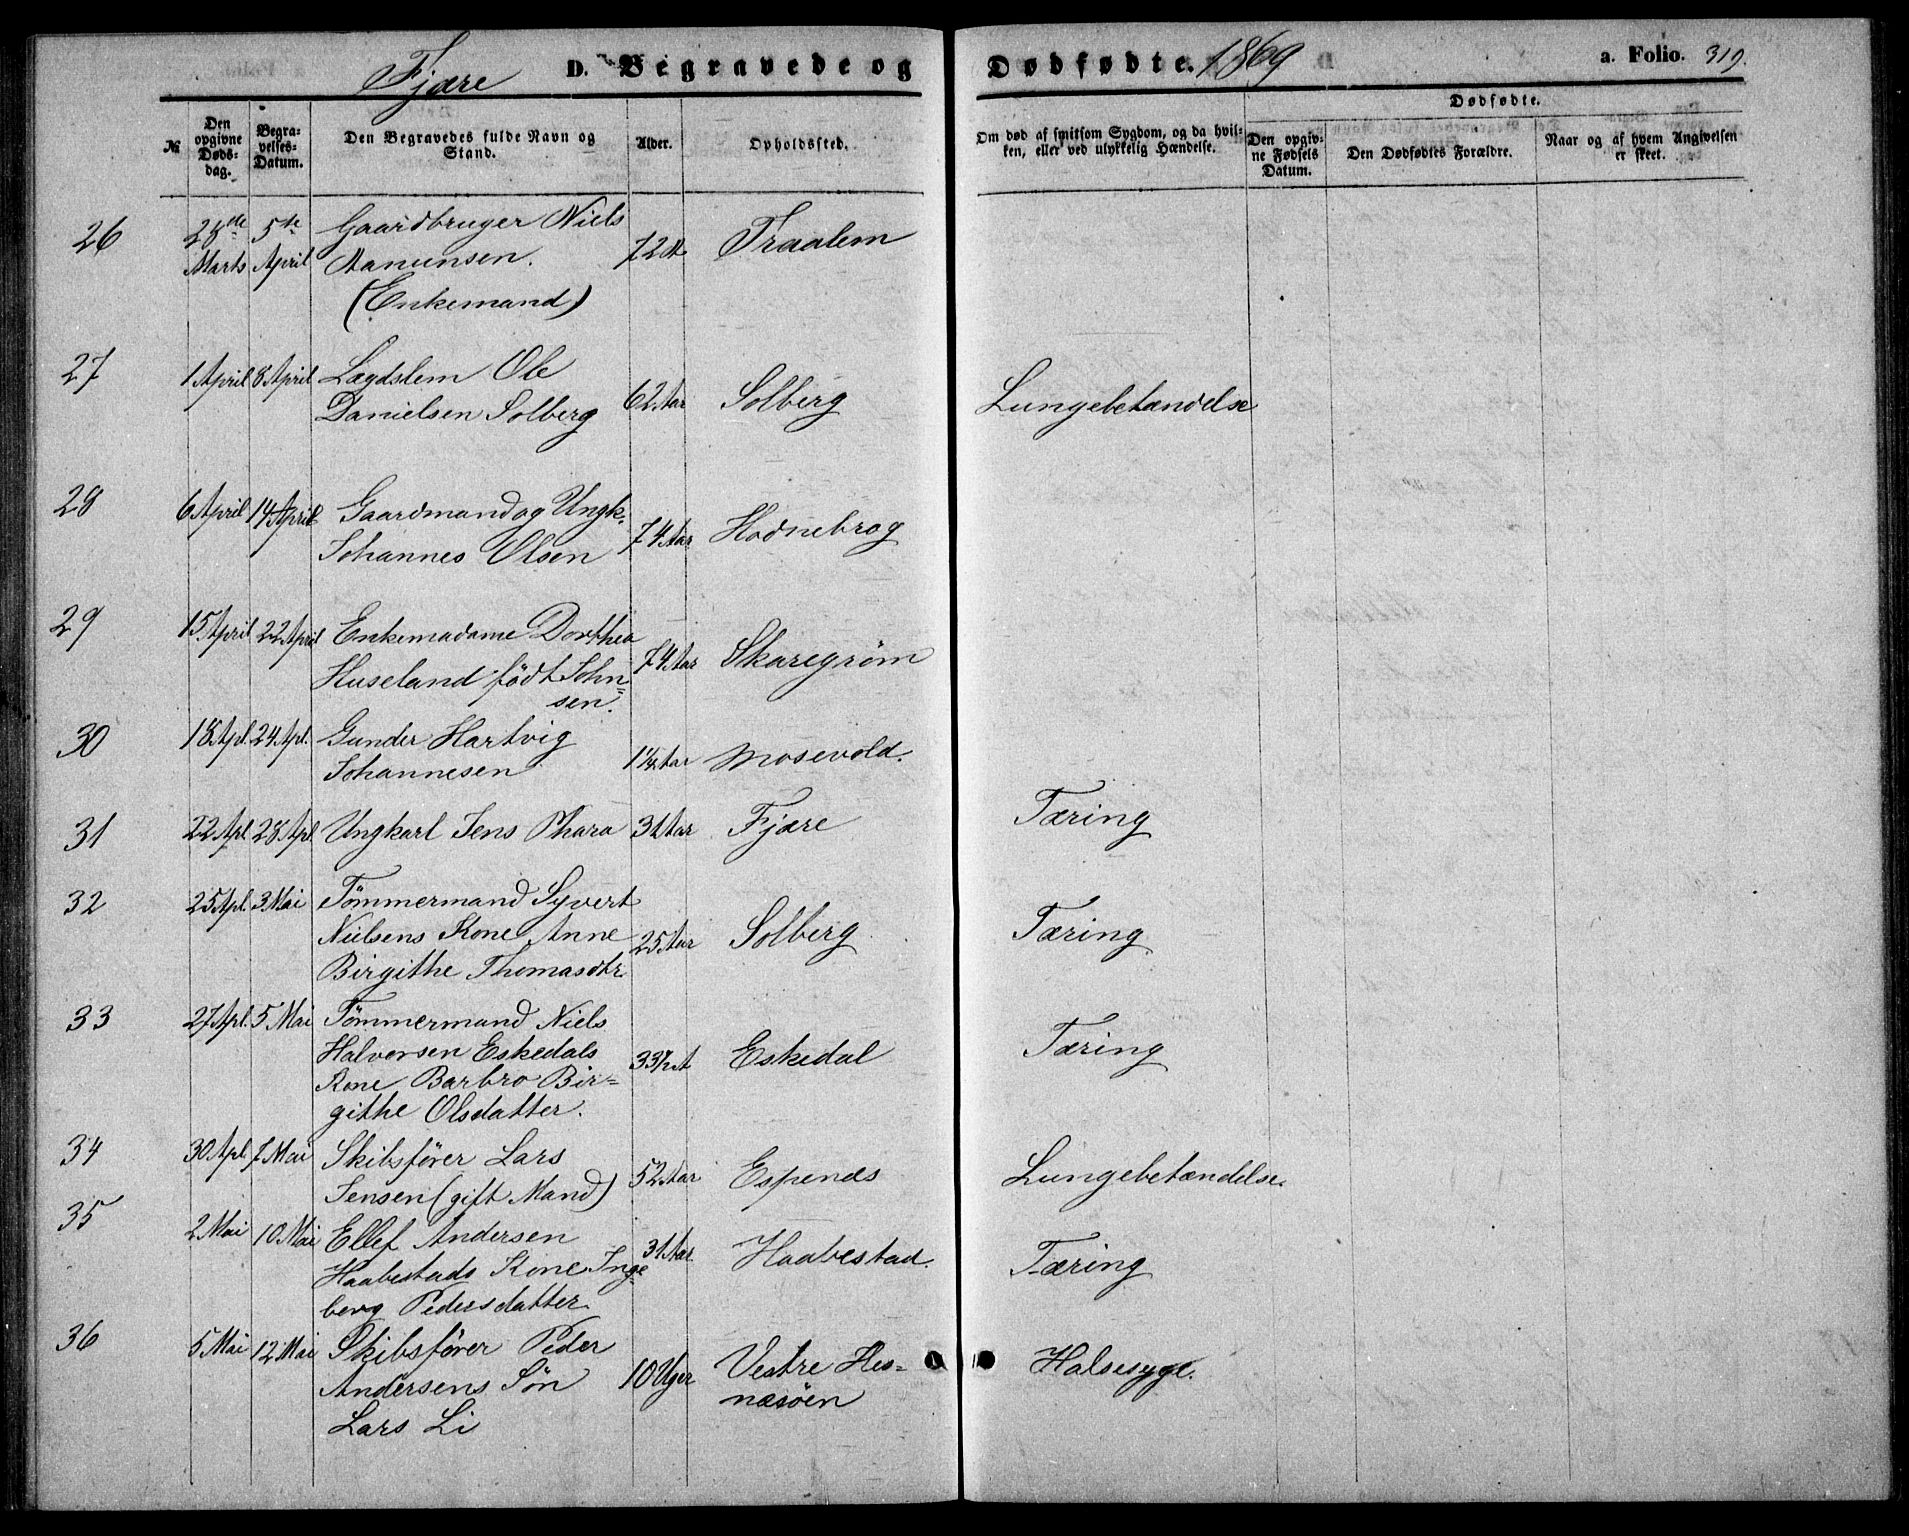 Fjære D. Begravede og Dødfødte. 1869 a. Folio. 319.
№ Den opgivne Døds-dag. Begra-velses-Datum. Den Begravedes fulde Navn og Stand. Alder. Opholdssted. Om død af smitsom Sygdom, og da hvil-ken, eller ved ulykkelig Hændelse. Dødfødte. Den opgiv-ne Fødsels Datum. Den Dødfødtes Forældre. Naar og af hvem Angivelsen er skeet.
26 28de 5te Gaardbruger Niels
Marts April Aanunsen. 72 A Traalem
(Enkemand)
27 1 April 8 April Lægdslem Ole
Danielsen Solberg 62 Aar Solberg Lungebetændelse
28 6 April 14 April Gaardmand og Ungk.
Johannes Olsen 74 Aar Hodnebrog
29 15 April 22 April Enkemadame Dorthea
Huseland født John= 74 Aar Skaregrøm
sen.
30 18 Apl. 24 Apl. Gunder Hartvig
Johannesen 1¼ Aar Mosevold.
31 22 Apl. 28 Apl. Ungkarl Jens Phara 31 Aar Fjære Tæring
32 25 Apl. 3 Mai Tømmermand Syvert
Nielsens Kone Anne 25 Aar Solberg Tæring
Birgithe Thomasdtr.
33 27 Apl. 5 Mai Tømmermand Niels
Halvorsen Eskedals 33½ A Eskedal Tæring
Kone Barbro Bir=
githe Olsdatter.
34 30 Apl. 7 Mai Skibsfører Lars
Jensen (gift Mand) 52 Aar Espenæs Lungebetændelse.
35 2 Mai 10 Mai Ellef Andersen
Haabestads Kone Inge= 31 Aar Haabestad. Tæring
berg Pedersdatter.
36 5 Mai 12 Mai Skibsfører Peder
Andersens Søn 10 Uger Vestre Hes= Halsesyge.
Lars Li næsøen